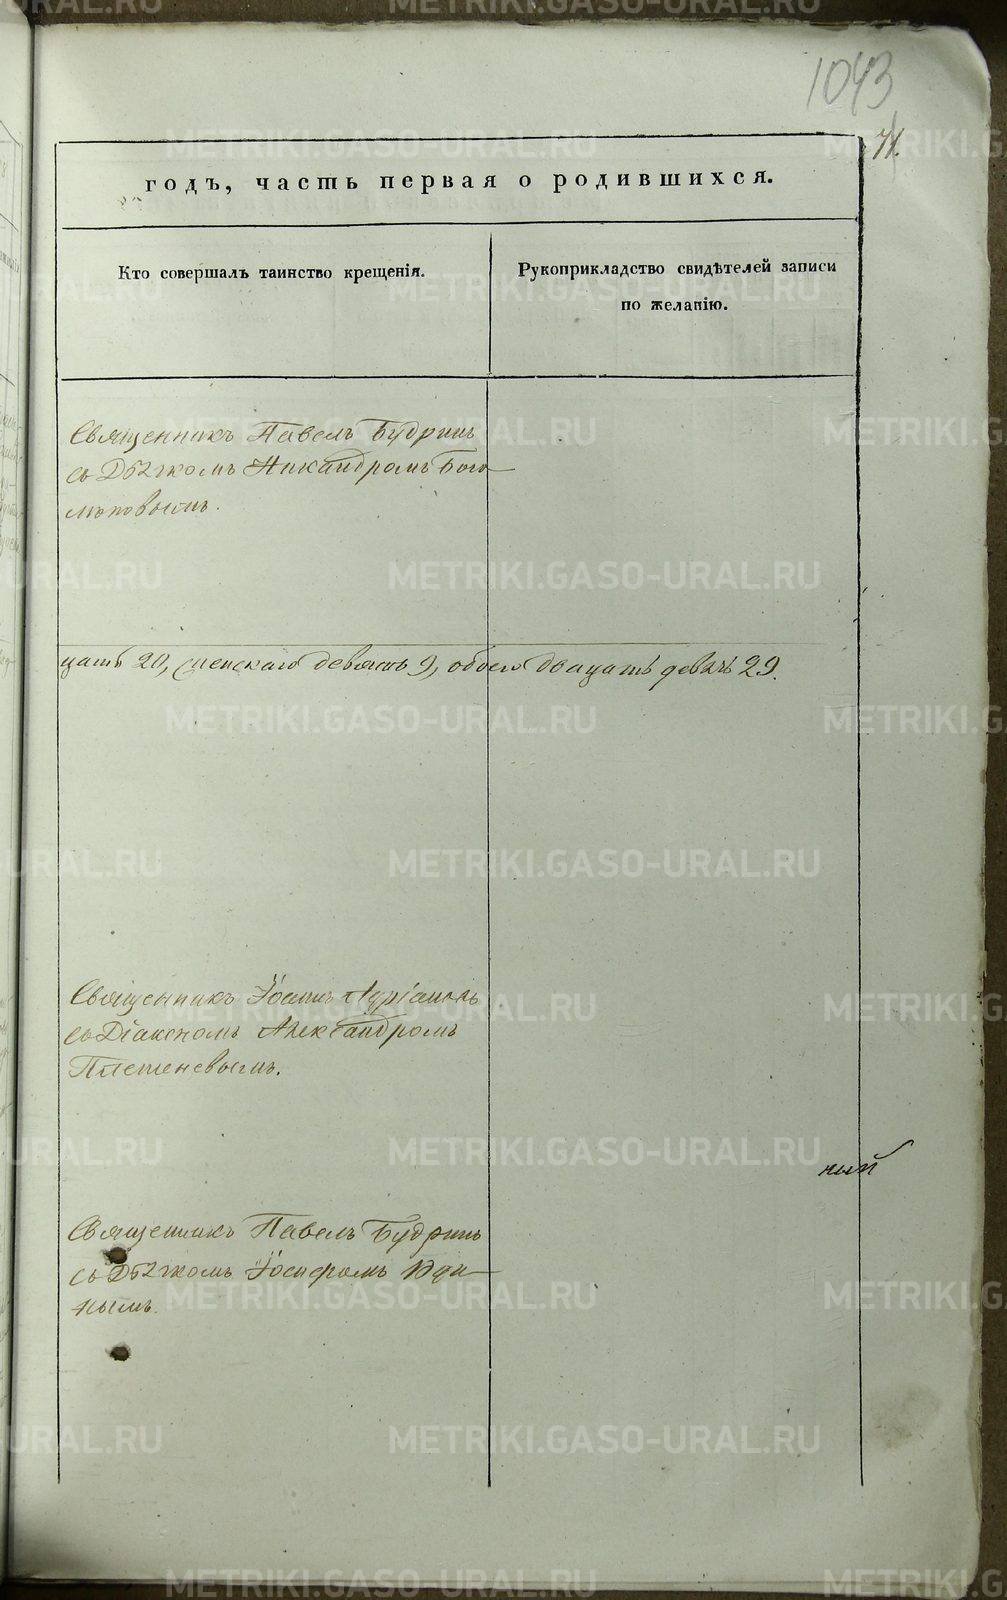 1043
71.
годъ, часть первая о родившихся.
Кто совершалъ таинство крещенія.
Рукоприкладство свидѣтелей записи
по желанію.
Священникъ Павелъ Будринъ
съ Дьячкомъ Никандромъ Бого
моловымъ.
цать 20, женскаго девять 9, обоего двацать девять 29.
Священникъ Іоаннъ Адріановъ
съ Діакономъ Александромъ
Плетеневымъ.
ный
Священникъ Павелъ Будринъ
съ Дьячкомъ Іосифомъ Юди
нымъ.
METRIKI.GASO-URAL.RU